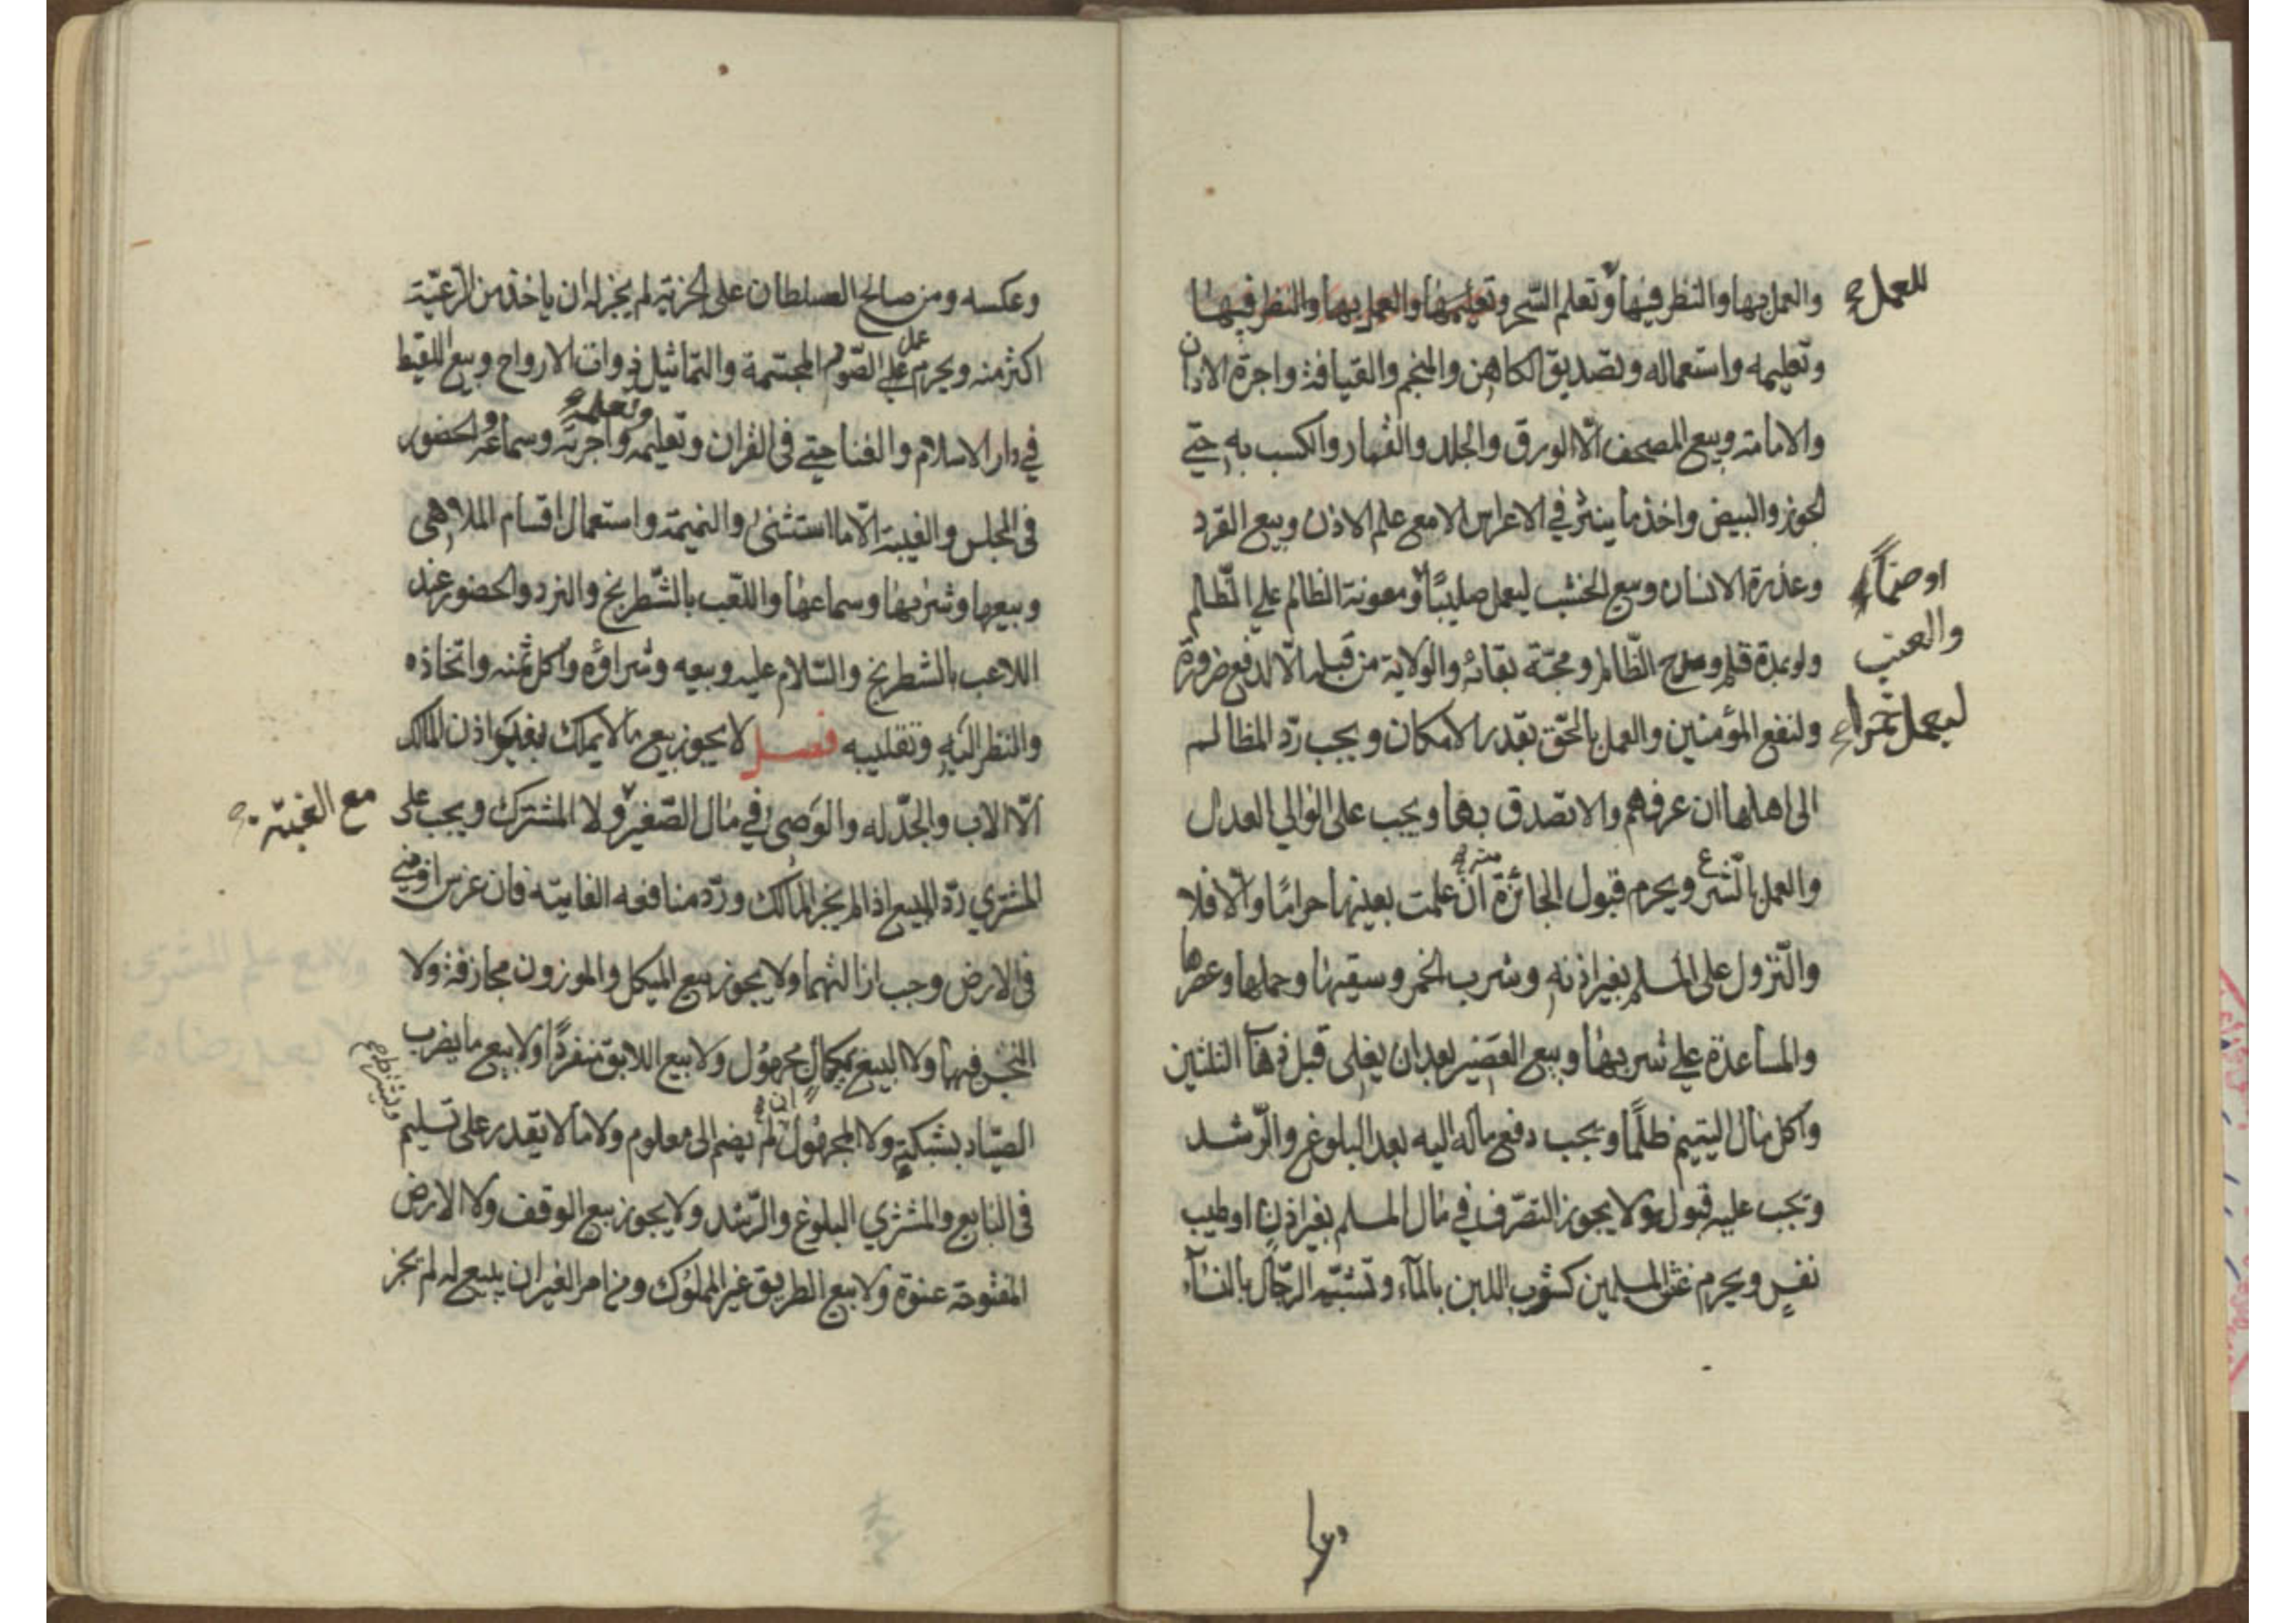 والعمل بها والنظر فيها وتعلم السحر وتعليمها والعمل بها والنظر فيها
للعمل
وتعليمه واستعماله وتصديق الكاهن والمنجم والقيافة واجرة الاذان
والامامة وبيع المصحف الّا الورق والجلد والقمار والكسب به حتى
الجوز والبيض واخذ ما ينثر في الاعراس الا مع علم الاذن وبيع القرد
وعذرة الانسان وبيع الخشب ليعمل صليبًا ومعونة الظالم على الظلم
او صنماً
والعنب
ليعمل خمراً
ولو بمدة قلم ومدح الظّالم ومحبّة بقائه والولاية من قبله الّا لدفع ضرورة
ولنفع المؤمنين والعمل بالحّق بقدر الامكان ويجب ردّ المظالم
الى اهلها ان عرفهم والا تصدق بها ويجب على الوالي العدل
والعمل بالشّرع ويحرم قبول الجائزة منه ان علمت بعينها حرامًا والّا فلا
والنّزول على المسلم بغير اذنه وشرب الخمر وسقيها وحملها وعصرها
والمساعدة على شربها وبيع العصير بعد ان يغلى قبل ذهاب الثلثين
واكل مال اليتيم ظلمًا ويجب دفع ماله اليه بعد البلوغ والرّشد
ويجب عليه قبوله ولا يجوز التصرّف في مال المسلم بغير اذن او طيب
نفس ويحرم غش المسلمين كشوب اللبن بالمآء وتشبّه الرّجال بالنسآء
وعكسه ومن صالح السلطان على الجزية لم يجز له ان ياخذ من الرّعيّة
اكثر منه ويحرم عمل الصّور المجسّمة والتماثيل ذوات الارواح وبيع اللقيط
في دار الاسلام والغنا حتى في القران وتعليمه وتعلمه واجرته وسماعه والحضور
في المجلس والغيبة الّا ما استثنى والنميمة واستعمال اقسام الملاهى
وبيعها وشربها وسماعها واللّعب بالشّطرنج والنرد والحضور عند
اللاعب بالشطرنج والسّلام عليه وبيعه وشراؤه واكل ثمنه واتخاذه
والنظر اليه وتقليبه فصل لا يجوز بيع ما لا يملك بغير اذن المالك
الّا الاب والجدّ له والوصى في مال الصّغير ولا المشترك ويجب على
مع الغبـ
المشتري ردّ المبيع اذا لم يجز المالك وردّ منافعه الفايتة فان غرس او بنى
في الارض وجب ازالتهما ولا يجوز بيع المكيل والموزون مجازفة ولا
البخس فيها ولا البيع بمكيال مجهول ولا بيع الابق منفردًا ولا بيع ما يضرب
الصيّاد بشبكته ولا المجهول ان لم يضم الى معلوم ولا ما لا يقدر على تسليم
ويشترط
في البايع والمشتري البلوغ والرّشد ولا يجوز بيع الوقف ولا الارض
المفتوحة عنوة ولا بيع الطريق غير المملوك ومن امر الغير ان يبيع له لم يجز